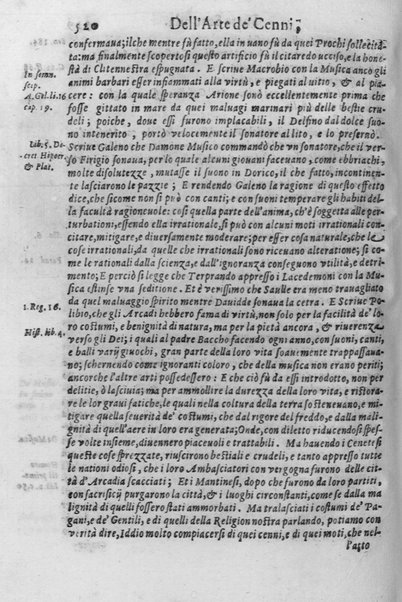 520 Dell'Arte de' Cenni,
confermaua; ilche mentre fù fatto, ella in uano fù da quei Prochi sollecita
ta: ma finalmente scopertosi questo artificio fù il citaredo ucciso, e la hone
stà di Clitennestra espugnata. E scriue Macrobio con la Musica ancogli
In somn.
scip.
animi barbari esser infiammati alla virtù, e piegati al uitio, & al pia
A. Gel. li. 16
cere: con la quale speranza Arione sonò eccellentemente prima che
cap. 19.
fosse gittato in mare da quei maluagi marinari più delle bestie cru
deli; poiche, doue essi furono implacabili, il Delfino dal dolce suo
no intenerito, portò velocemente il sonatore al lito, e lo preseruò.
Lib. 5. De
Scriue Galeno che Damone Musico commandò che vn sonatore, che il ver
cret Hipocr.
so Firigio sonaua, per lo quale alcuni giouani faceuano, come ebbriachi,
& Plat.
molte disolutezze, mutasse il suono in Dorico, il che fatto, incontinen
te lasciarono le pazzie; E rendendo Galeno la ragione di questo effetto
dice, che sicome non si può con canti; e con suoni temperare gli habiti del
la facultà ragioneuole: così quella parte dell'anima, ch'è soggetta alle per
turbationi, essendo ella irrationale, si può con alcuni moti irrationali con
citare, mitigare, e diuersamente moderare; per esser cosa naturale, che le
cose irrationali, da quelle che irrationali sono riceuano alteratione; sì co
me le rationali dalla scienza, e dall'ignoranza conseguono vtilità, e detri-
mento; E perciò si legge che Terprando appresso i Lacedemoni con la Mu
sica estinse vna seditione. Et è verissimo che Saulle era meno trauagliato
1. Reg. 16.
da quel maluaggio spirito mentre Dauidde sonaua la cetra. E Scriue Po
libio, che gli Arcadi hebbero fama di virtù, non solo per la facilità de' lo
ro costumi, e benignità di natura, ma per la pietà ancora, & riuerenza
Hist. lib. 4.
verso gli Dei; i quali al padre Baccho facendo ogni anno, con suoni, canti,
e balli varij giuochi, gran parte della loro vita soauemente trappassaua-
no; schernendo come ignoranti coloro, che della musica non erano periti;
ancorche l'altre arti possedessero: E che ciò fù da essi introdotto, non per
delitie, ò lasciuia; ma per ammollire la durezza della loro vita, e ristora-
re le lor graui fatiche, le quali nella coltura della terra sosteneuano, e mi-
tigare quella seuerità de' costumi, che dal rigore del freddo, e dalla mali-
gnità di quell'aere in loro era generata; Onde, con diletto riducendosi spes
se volte insieme, diuennero piaceuoli e trattabili. Ma hauendo i Cenetesi
queste cose sprezzate, riuscirono bestiali e crudeli, e tanto appresso tutte
le nationi odiosi, che i loro Ambasciatori con vergogna furono delle cit
tà d'Arcadia scacciati; Et i Mantinesi, dopo che furono da loro partiti,
con sacrificij purgarono la città, & i luoghi circonstanti, come se dalla ma
lignità di quelli fossero stati ammorbati. Ma tralasciati i costumi de' Pa-
gani, e de' Gentili, e di quelli della Religion nostra parlando, potiamo con
verità dire, Iddio molto compiacersi di quei cenni, e di quei moti, che nel-
l'atto